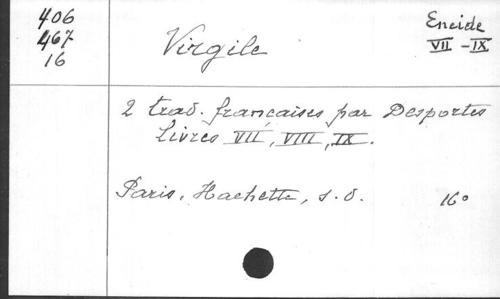 406
467
16
Virgile
Eneide
VII - IX
2 trad. françaises par Desportes
Livres VII, VIII, IX.
Paris, Hachette, s.d.
16°